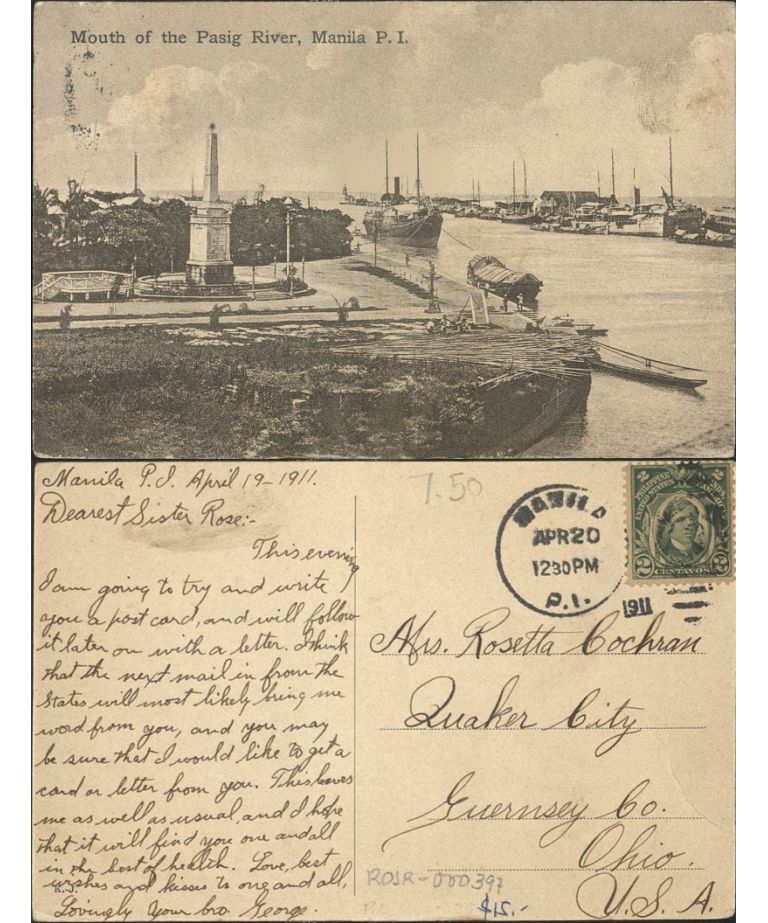 Mouth of the Pasig River, Manila P. I.
Manila P.I. April 19-1911.
Dearest Sister Rose:-
This evening
I am going to try and write
you a post card, and will follow
it later on with a letter. I think
that the next mail in from the
States will most likely bring me
word from you, and you may
be sure that I would like to get a
card or letter from you. This leaves
me as well as usual, and I hope
that it will find you one and all
in the best of health. Love, best
wishes and kisses to one and all,
Lovingly Your bro. George.
K.J.
7.50
MANILA
APR 20
1230 PM
P.I.
1911
2 2
PHILIPPINE ISLANDS
UNITED STATES OF AMERICA
2 CENTAVOS 2
Mrs. Rosetta Cochran
Quaker City
Guernsey Co.
Ohio.
U.S.A.
ROJR-000397
$15.-